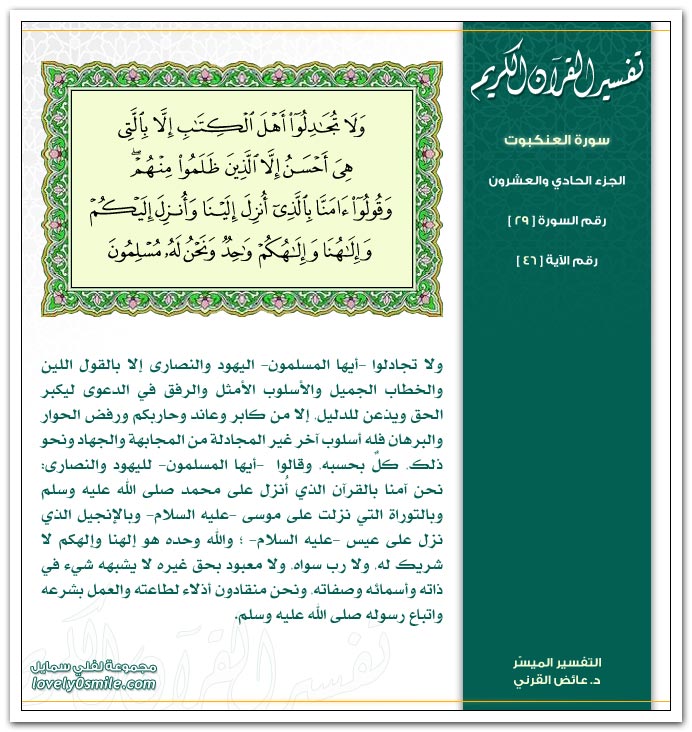 تفسير القرآن الكريم
سورة العنكبوت
الجزء الحادي والعشرون
رقم السورة [ ٢٩ ]
رقم الآية [ ٤٦ ]
وَلَا تُجَٰدِلُوٓا۟ أَهْلَ ٱلْكِتَٰبِ إِلَّا بِٱلَّتِى
هِىَ أَحْسَنُ إِلَّا ٱلَّذِينَ ظَلَمُوا۟ مِنْهُمْ ۖ
وَقُولُوٓا۟ ءَامَنَّا بِٱلَّذِىٓ أُنزِلَ إِلَيْنَا وَأُنزِلَ إِلَيْكُمْ
وَإِلَٰهُنَا وَإِلَٰهُكُمْ وَٰحِدٌ وَنَحْنُ لَهُۥ مُسْلِمُونَ
ولا تجادلوا -أيها المسلمون- اليهود والنصارى إلا بالقول اللين
والخطاب الجميل والأسلوب الأمثل والرفق في الدعوى ليكبر
الحق ويذعن للدليل، إلا من كابر وعاند وحاربكم ورفض الحوار
والبرهان فله أسلوب آخر غير المجادلة من المجابهة والجهاد ونحو
ذلك، كلٌ بحسبه، وقالوا -أيها المسلمون- لليهود والنصارى:
نحن آمنا بالقرآن الذي أُنزل على محمد صلى الله عليه وسلم
وبالتوراة التي نزلت على موسى -عليه السلام- وبالإنجيل الذي
نزل على عيس -عليه السلام- ؛ والله وحده هو إلهنا وإلهكم لا
شريك له، ولا رب سواه، ولا معبود بحق غيره لا يشبهه شيء في
ذاته وأسمائه وصفاته، ونحن منقادون أذلاء لطاعته والعمل بشرعه
واتباع رسوله صلى الله عليه وسلم.
التفسير الميسّر
د. عائض القرني
مجموعة لفلي سمايل
lovely0smile.com
تفسير القرآن الكريم